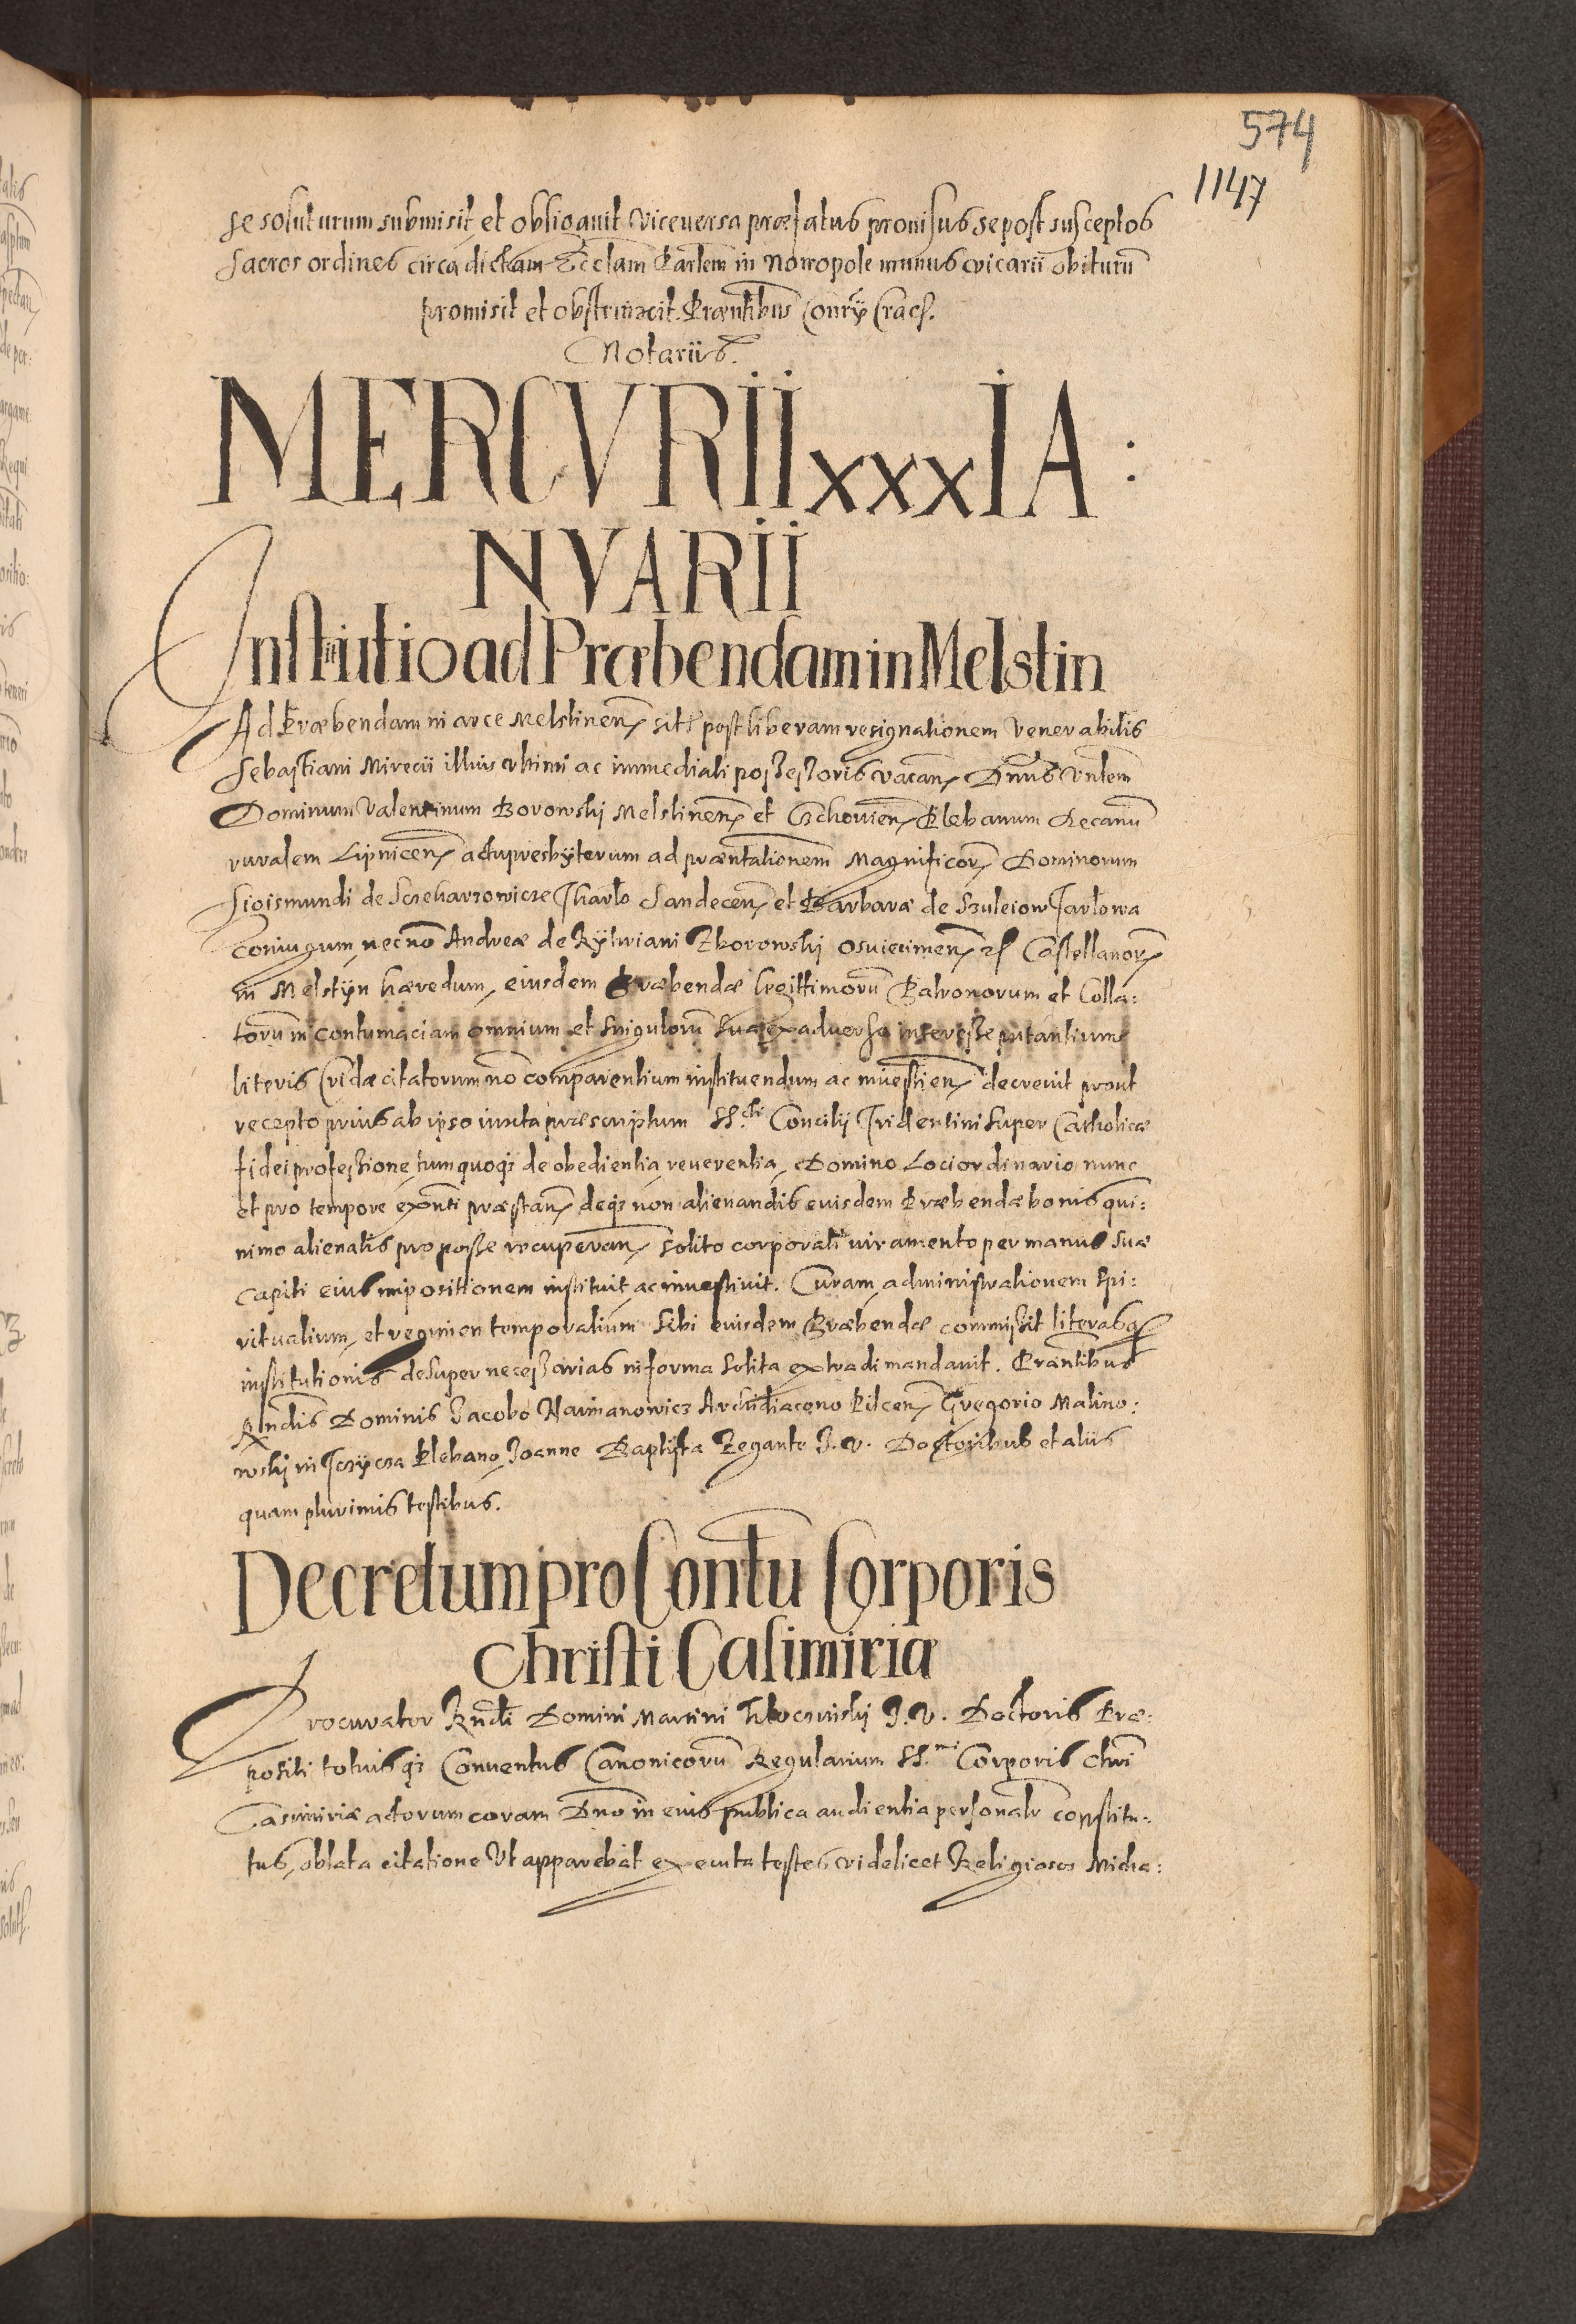 574
1147
se soluturum submisit, et obligauit viceversa præfatus prouisus se post susceptos
sacros ordines circa dictam Ecclam Parlem in Nowopole munus vicarii obiturū
promisit et obstrinxit. Præntibus Conrÿ Cracſ.
Notariis.
MERCVRII xxx IA:
NVARII
Institutio ad Præbendam in Melstin
Ad Præbendam in arce Melstinen sit post liberam resignationem Venerabilis
Sebastiani Mirecii illius vltimi ac immediati possessoris vacan Dnus Vnlem
Dominum Valentinum Borowskj Melstinen et Plebanum Decanū
ruralem Lipnicen actu presbyterum ad præntationem Magnificor Dominorum
Sigismundi de Jharlo Sandecen et Barbaræ de Jarlowa
coniugum, necnō Andreæ de Zborowskj Osuiecimen Castellanor
in Melstÿn hæredum, eiusdem Præbendæ legittimorū Patronorum et Colla:
torū in contumaciam omnium et singulorū sua ex aduerso interesse putantium
literis Cridæ citatorum nō comparentium instituendum ac inuestien decreuit prout
recepto prius ab ipso iuxta præscriptum SS.cti Concilij Tridentini super Catholicæ
fidei professione, tum quoq; de obedientia, reuerentia, Domino Loci ordinario nunc
et pro tempore exnti præstan, deq; non alienandis euisdem Præbendæ bonis qui:
nimo alienatis pro posse recuperan, solito corporali iuramento per manus suæ
capiti eius impositionem instituit, ac inuestiuit. Curam, administrationem spi:
ritualium, et regimen temporalium sibi euisdem Præbendæ commisit literasq
institutionis desuper necessarias in forma solita extradi mandauit. Præntibus
Rndis Dominis Jacobo Naimanowicz Archidiacono Pilcen, Gregorio Malino:
wskj in Plebano, Joanne Baptista J. V. Doctoribus et aliis
quam plurimis testibus.
Decretum pro Contu Corporis
Christi Casimiriæ
Procurator Rndi Domini Martini J. V. Doctoris Præ:
positi totuisq; Conuentus Canonicorū Regularium SS.mi Corporis Chri
Casimiriæ actorum coram Dno in eius publica audientia personalr constitu:
tus, oblata citatione Vt apparebat executa testes videlicet Religiosos Micha: